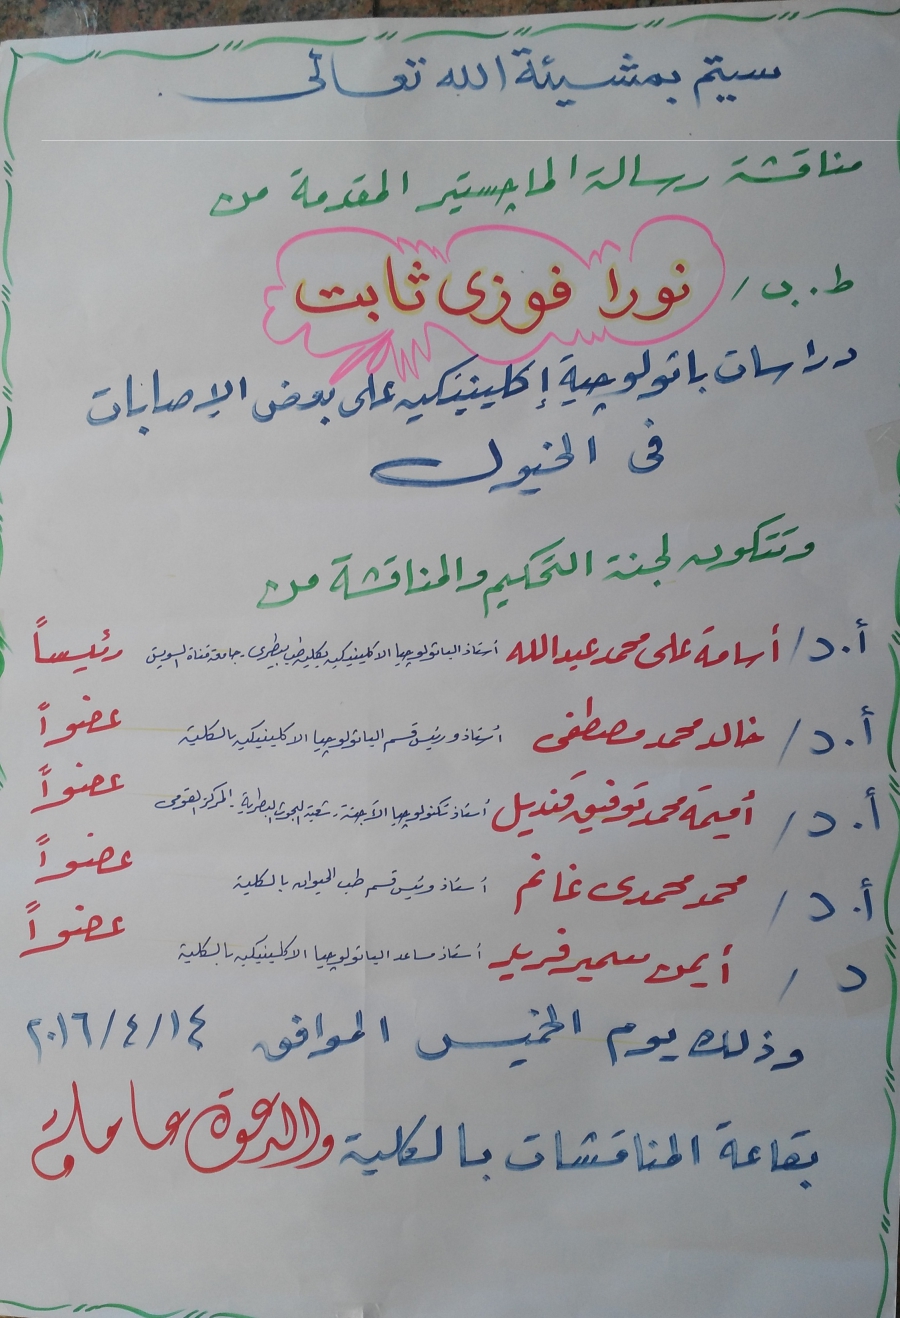 سيتم بمشيئة الله تعالى
مناقشة رسالة الماجستير المقدمة من
ط.ب/ نورا فوزى ثابت
دراسات باثولوجية إكلينيكيه على بعض الإصابات
فى الخيول
وتتكون لجنة التحكيم والمناقشة من
أ.د/ أسامة على محمد عبدالله أستاذ الباثولوجيا الاكلينيكيه بكلية طب بيطرى. جامعة قناة السويس رئيساً
أ.د/ خالد محمد مصطفى أستاذ ورئيس قسم الباثولوجيا الاكلينيكيه بالكلية عضواً
أ.د/ أميمة محمد توفيق قنديل أستاذ تكنولوجيا الأجنة. شعبة البحوث البيطرية. المركز القومى عضواً
أ.د/ محمد محمدى غانم أستاذ ورئيس قسم طب الحيوان بالكلية عضواً
د/ أيمن سمير فريد أستاذ مساعد الباثولوجيا الاكلينيكيه بالكلية عضواً
وذلك يوم الخميس الموافق ٢٠١٦/٤/١٤
بقاعة المناقشات بالكلية والدعوة عامة